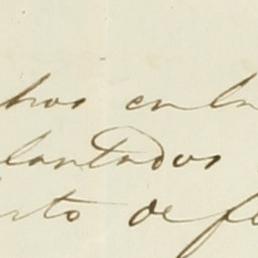 hos en la
lantados
rto de fe